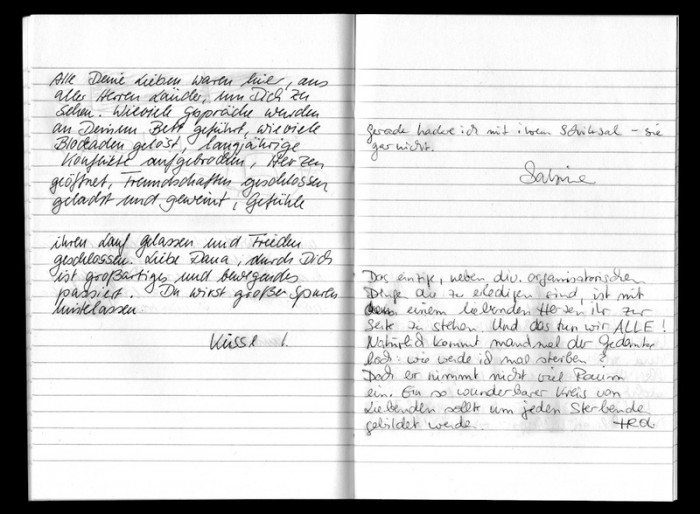 Alle Deine Lieben waren hier, aus
aller Herren Länder, um Dich zu
sehen. Wieviele Gespräche wurden
an Deinem Bett geführt, wieviele
Blockaden gelöst, langjährige
Konflikte aufgebrochen, Herzen
geöffnet, Freundschaften geschlossen
gelacht und geweint, Gefühle
ihren Lauf gelassen und Frieden
geschlossen. Liebe Dana, durch Dich
ist großartiges und bewegendes
passiert. Du wirst große Spuren
hinterlassen
Küsse
Gerade hadre ich mit ihrem Schicksal – sie
gar nicht.
Sabine
Das einzige, neben div. organisatorischen
Dinge die zu erledigen sind, ist mit
einem liebenden Herzen ihr zur
Seite zu stehen. Und das tun wir ALLE!
Natürlich kommt manchmal der Gedanke
hoch: wie werde ich mal sterben?
Doch er nimmt nicht viel Raum
ein. Ein so wunderbarer Kreis von
Liebenden sollte um jeden Sterbende
gebildet werde..